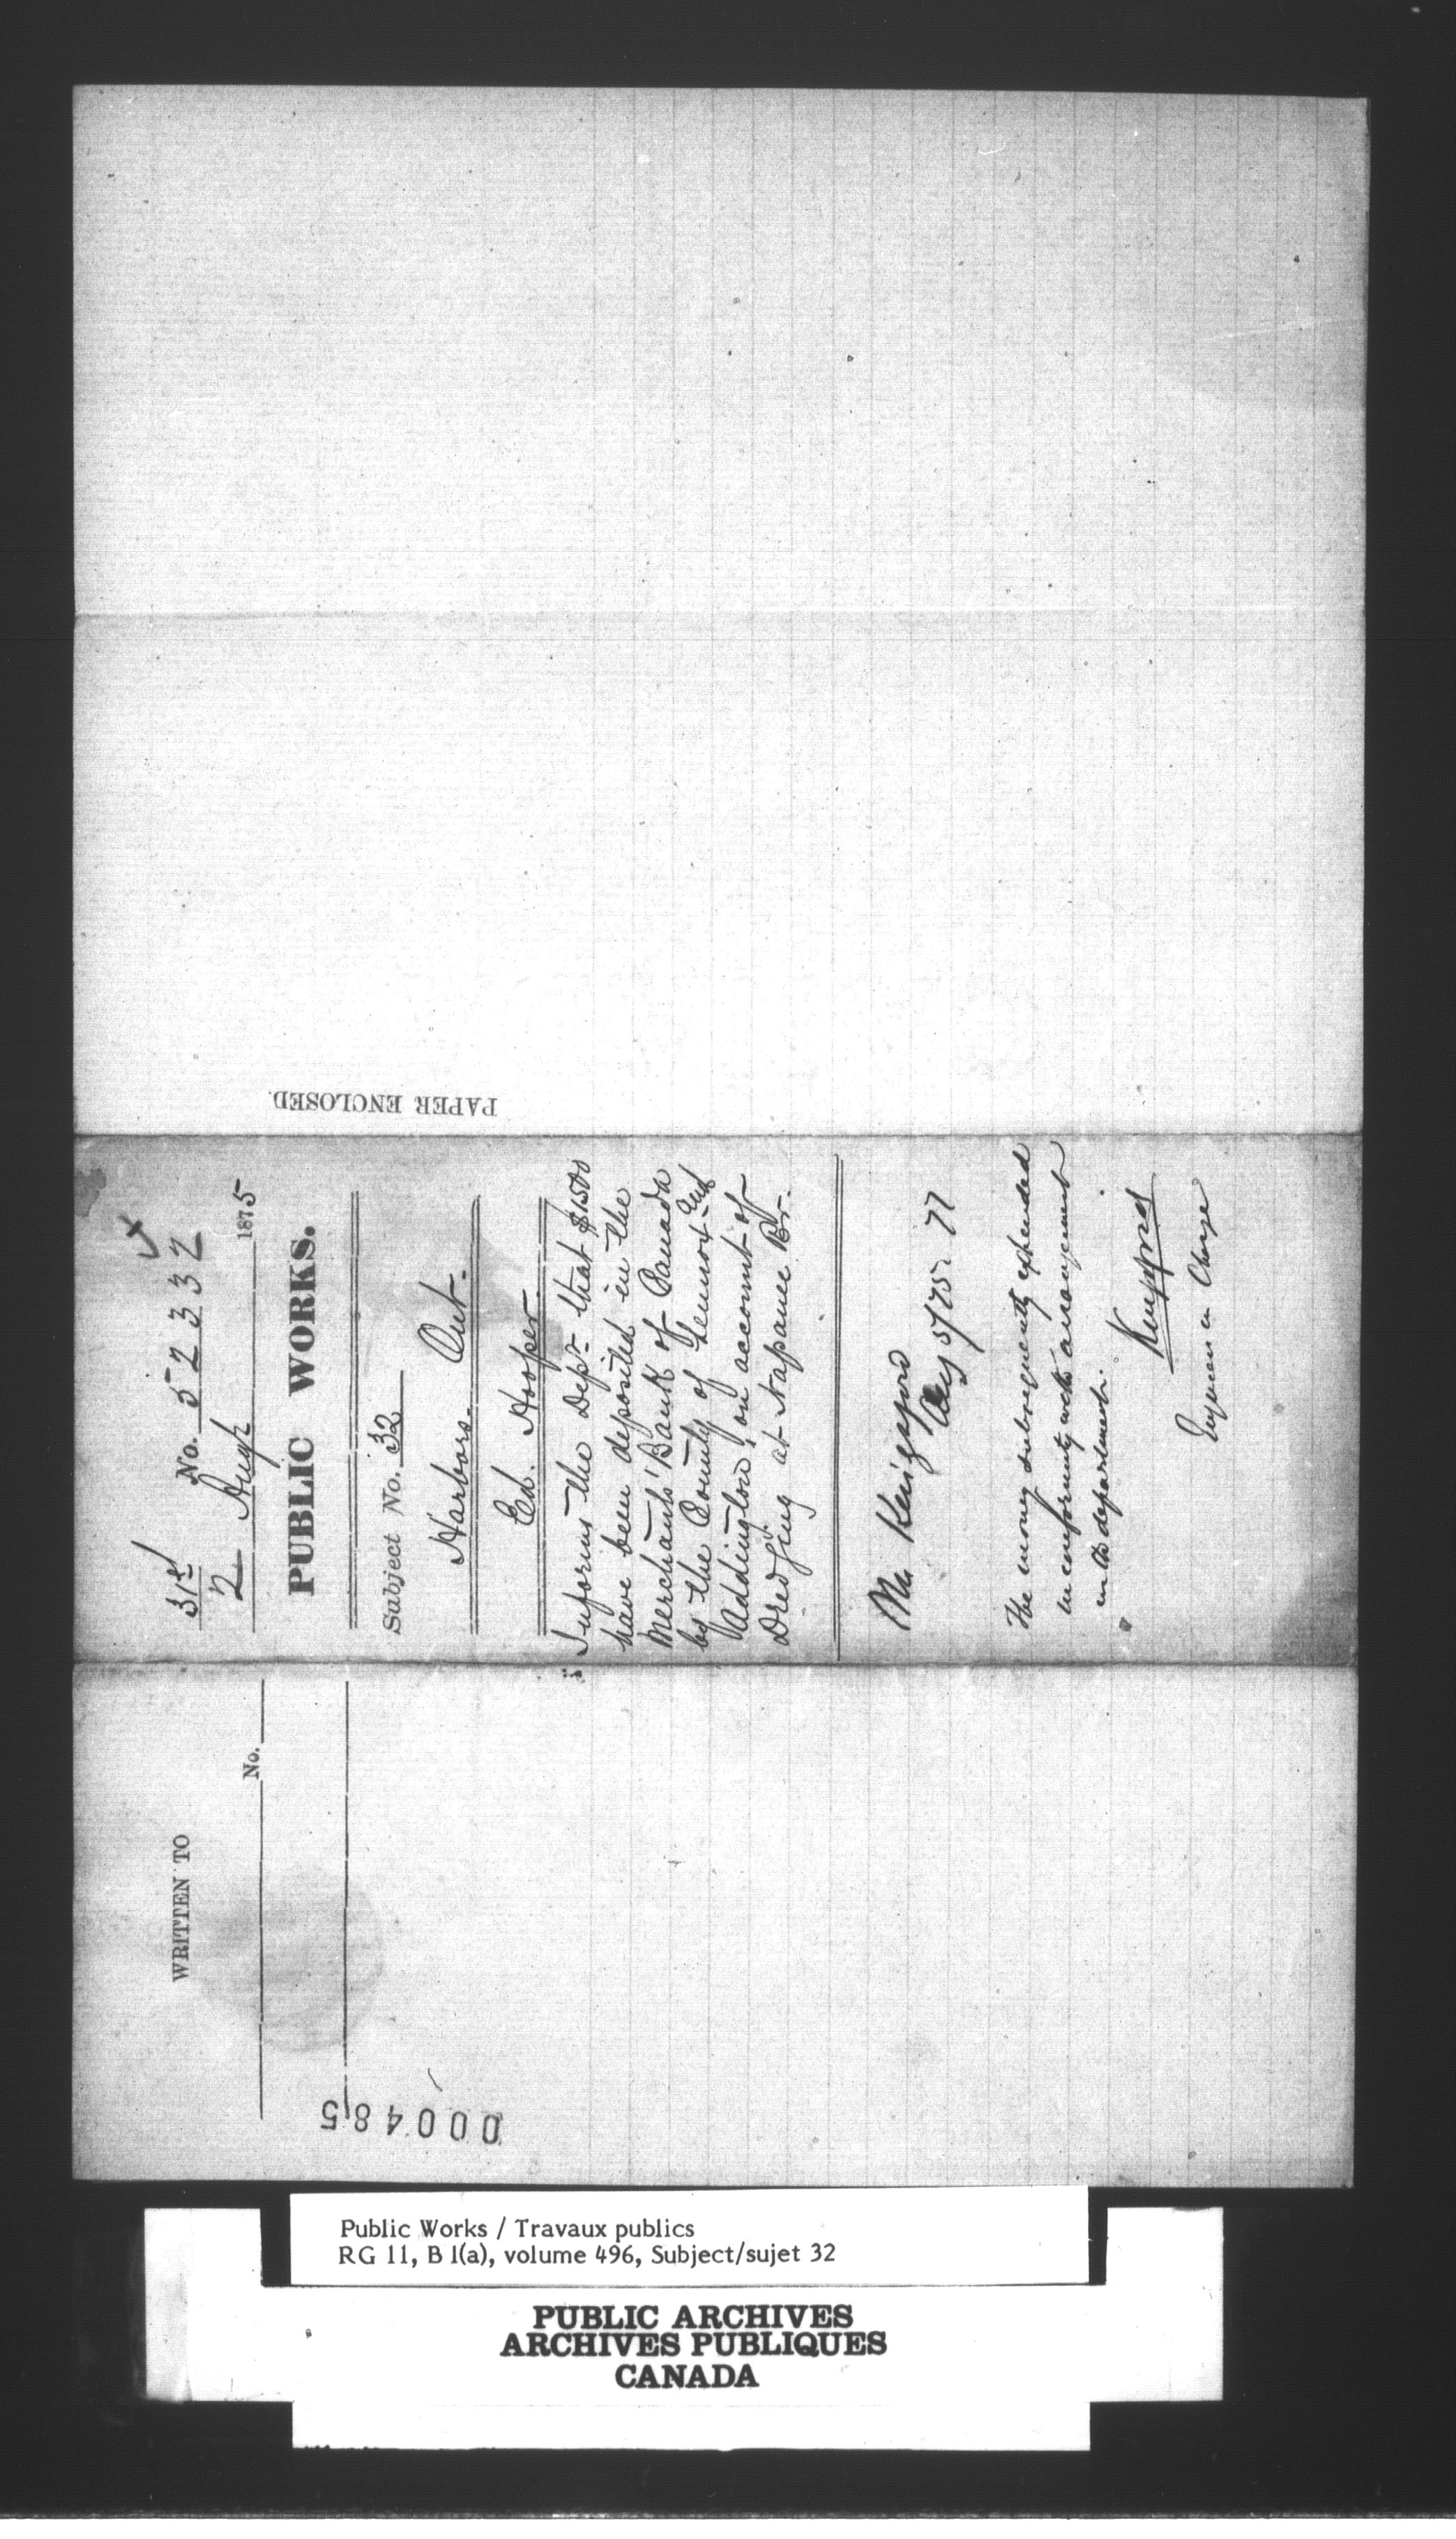 PAPER ENCLOSED.
31st No. 52332
2 Augt 1875
PUBLIC WORKS.
Subject No. 32
Harbors. Ont.
Ed. Hooper.
Informs the Dept. that $1500
have been deposited in the
Merchants' Bank of Canada
by the County of Lennox and
Addington, on account of
Dredging at Napanee Rr.
Mr Kingsford
Aug 5/75. 77
The money subsequently expended
in conformity with arrangement
in the department.
Engineer in Charge
WRITTEN TO
No.
000485
Public Works / Travaux publics
RG 11, B 1(a), volume 496, Subject/sujet 32
PUBLIC ARCHIVES
ARCHIVES PUBLIQUES
CANADA